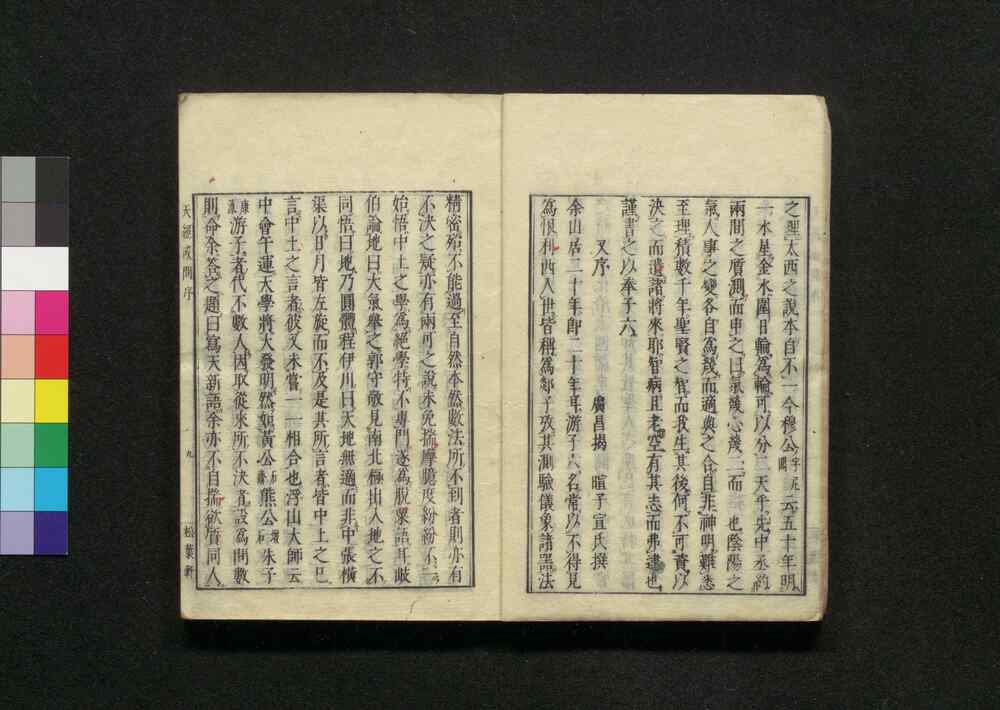 之理太西之說本自不一今穆公字天
閣云五十年明
一水星金水圍日輪爲輪可以分三天乎先中丞約
兩間之質測而申之曰氣幾心幾二而一也陰陽之
氣人事之變各自爲幾而適與之合自非神明難悉
至理積數千年聖賢之智而我生其後何不可資以
決之而遺諸將來耶智病且老空有其志而弗逮也
謹書之以奉子六
又序
廣昌揭暄子宣氏撰
余山居二十年即二十年耳游子六名常以不得見
爲恨利西入世皆稱爲郯子攷其測驗儀象諸器法
精密殆不能過至自然本然數法所不到者則亦有
不決之疑亦有兩可之說未免揣摩臆度紛紛不一
始悟中土之學爲絕學特不專門遂爲脫衆語耳岐
伯論地曰大氣舉之郭守敬見南北極出入地之不
同悟曰地乃圓體程伊川曰天地無適而非中張橫
渠以日月皆左旋而不及是其所言者皆中土之已
言中土之言者彼又未嘗一一相合也浮山大師云
中會午運天學將大發明然如黃公石齋熊公壇石朱子
康流游子者代不數人因取從來所不決者設爲問數
則命余答之題曰寫天新語余亦不自揣欲質同人
天經或問序
九
松葉軒